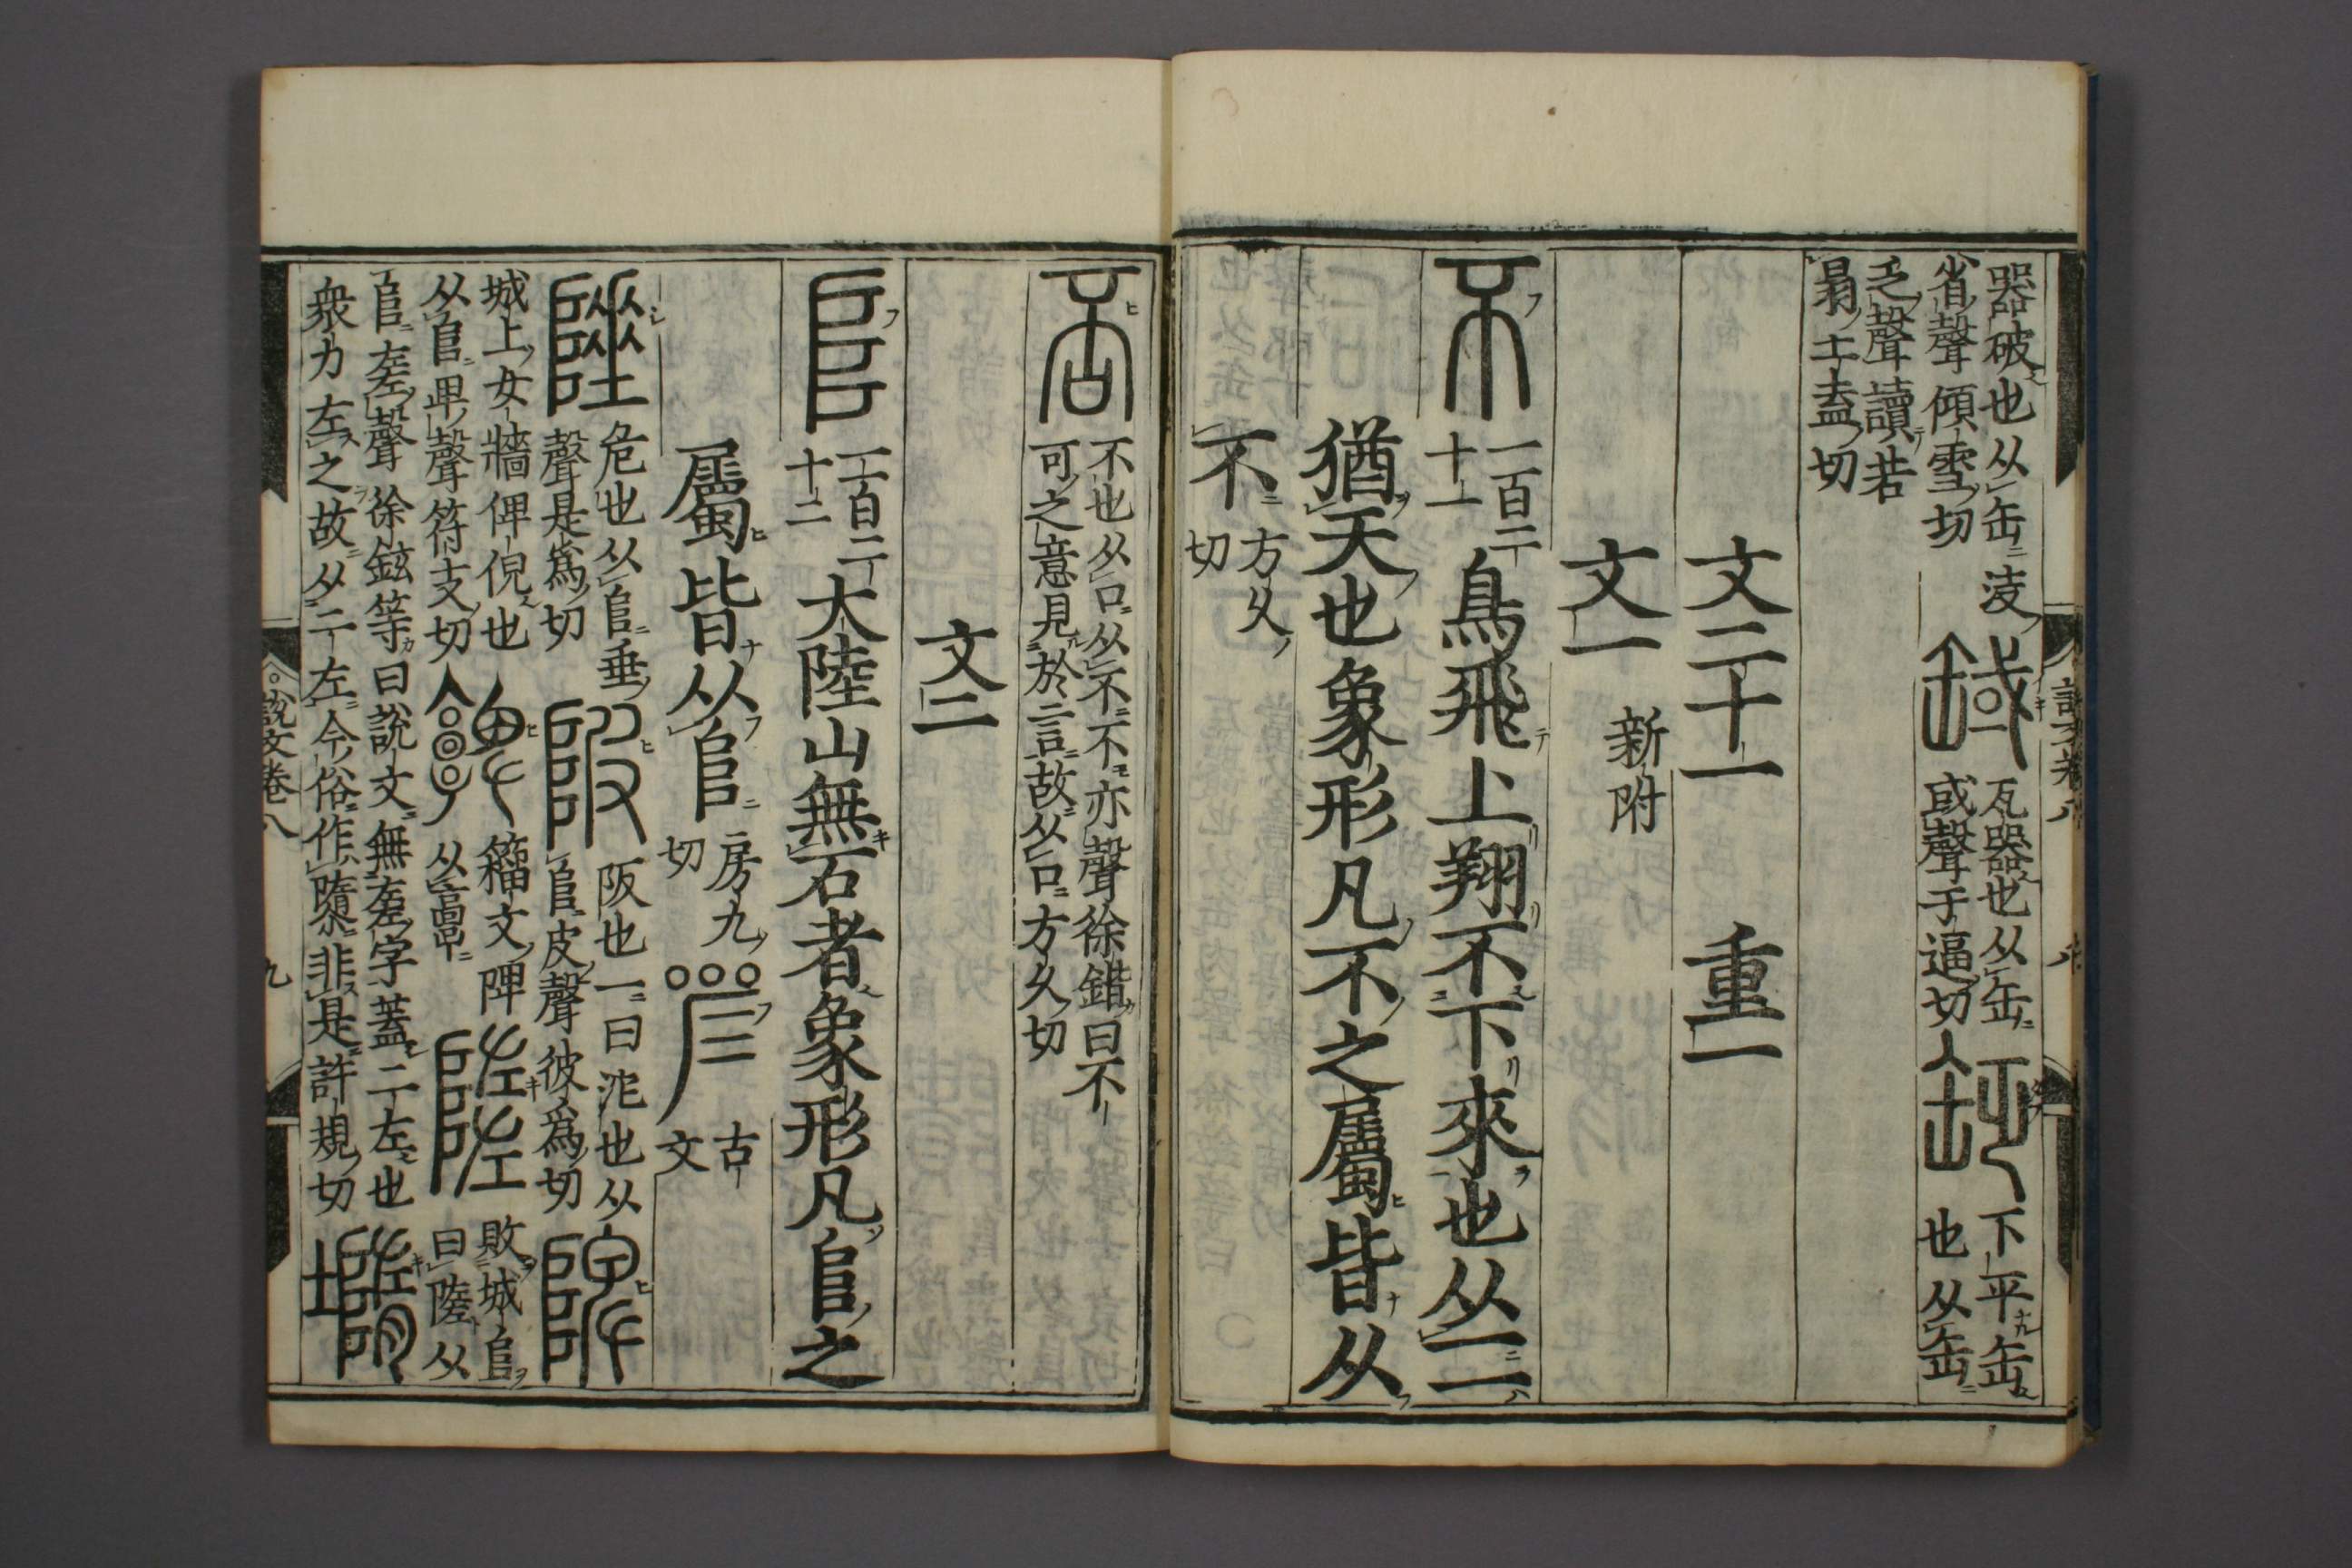 器破也从缶決
省聲傾雪切
瓦器也从缶
或聲于逼切
下平缶
也从缶
乏聲讀若
弱土盍切
文二十一 重一
文一 新附
一百二
十一
鳥飛上翔不下來也从一一
猶天也象形凡不之屬皆从
不
方久
切
不也从口从不不亦聲徐鍇曰不
可之意見於言故从口方久切
文二
𨸏
一百二
十二
大陸山無石者象形凡𨸏之
屬皆从𨸏
房九
切
古
文
危也从𨸏垂
聲是爲切
阪也一曰沱也从
𨸏皮聲彼爲切
城上女牆俾倪也
从𨸏卑聲符支切
籀文陴
从𩫖
敗城𨸏
曰陸从
𨸏左聲徐鉉等曰說文無㢀字蓋二左也
衆力左之故从二左今俗作隳非是許規切
說文卷八
九